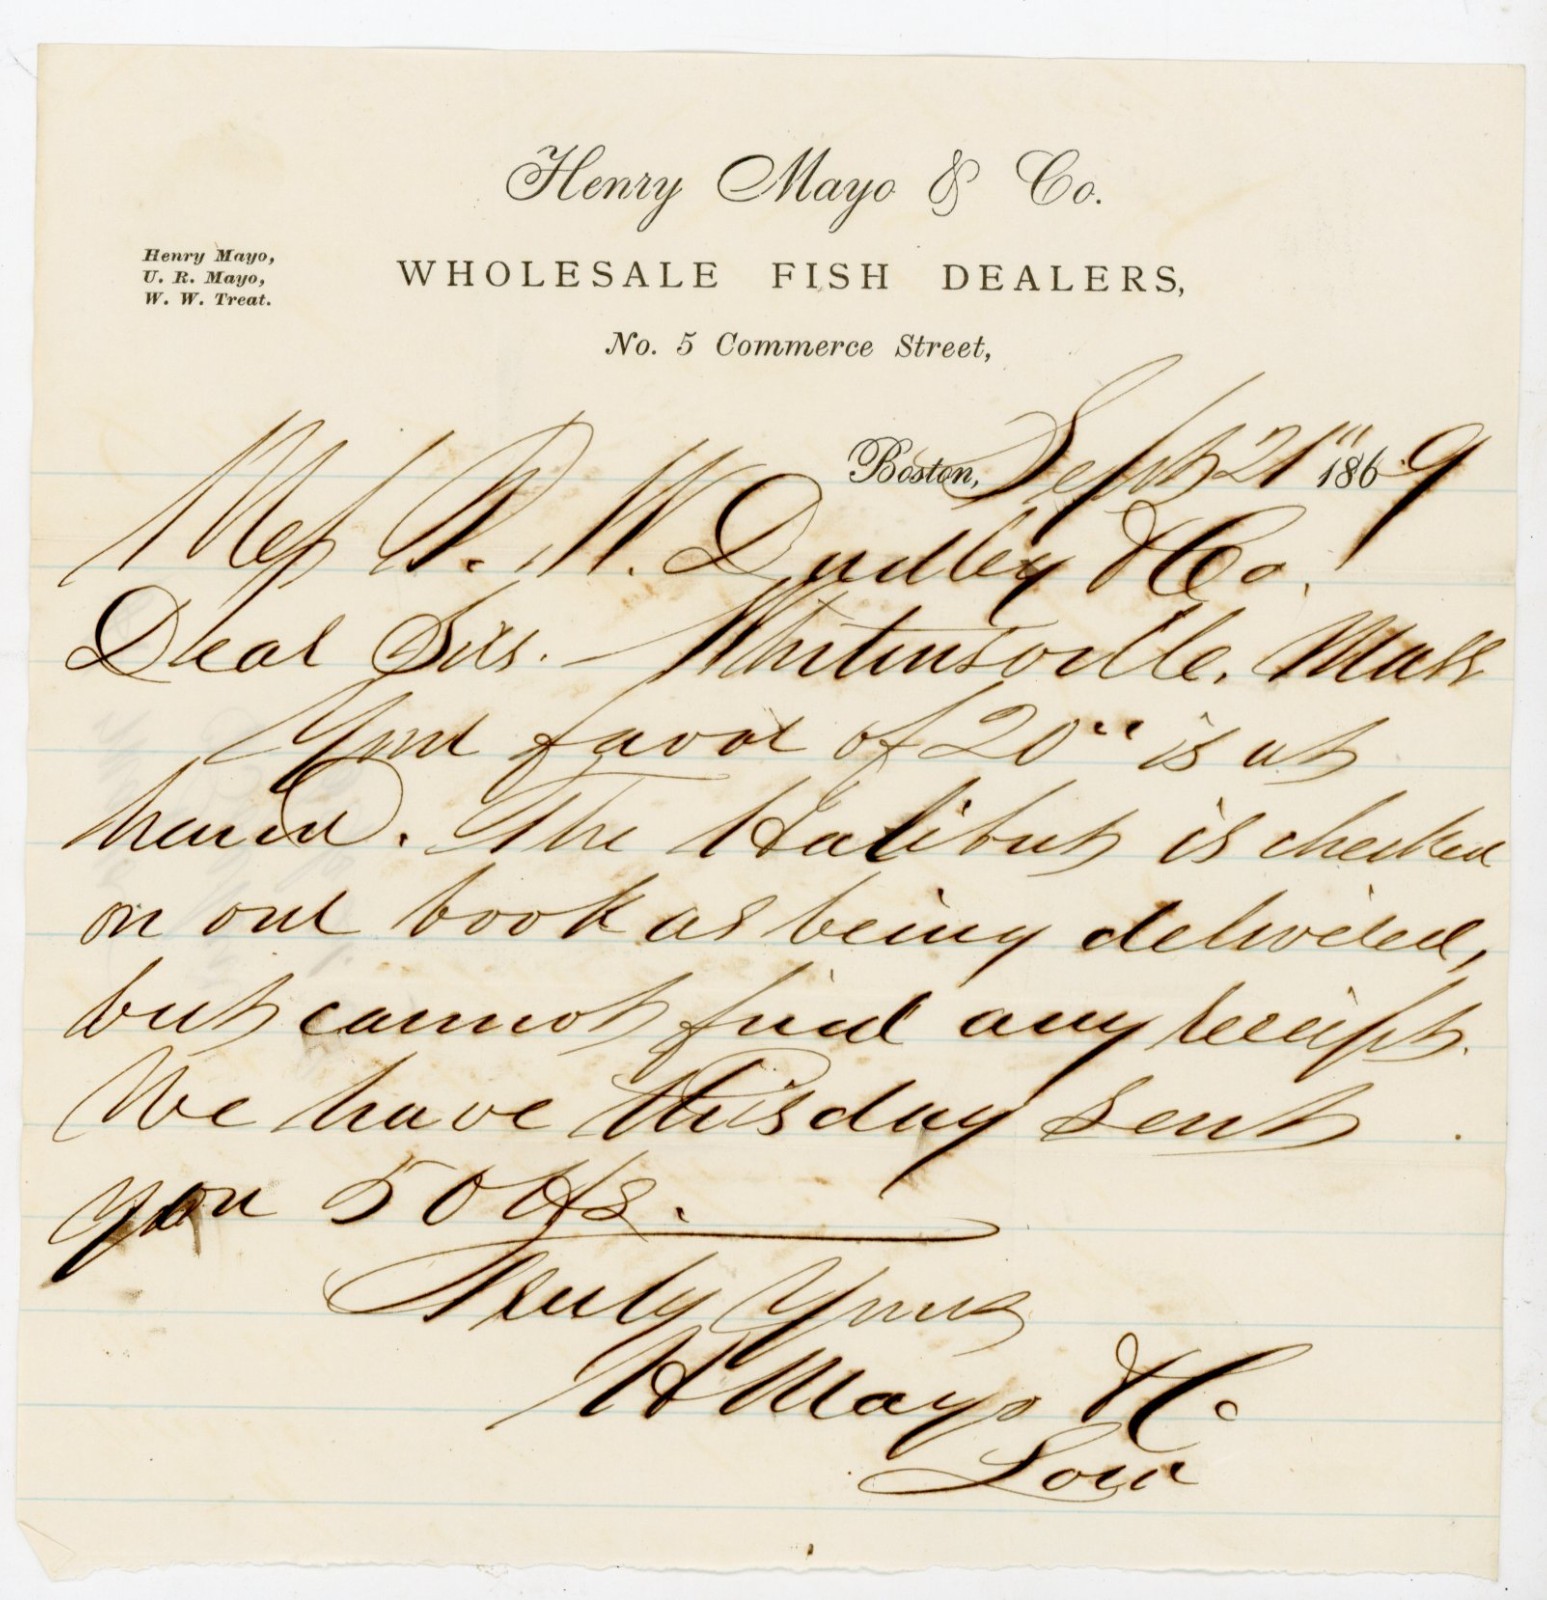 Henry Mayo & Co.
Henry Mayo,
U. R. Mayo,
W. W. Treat.
WHOLESALE FISH DEALERS,
No. 5 Commerce Street,
Boston, Sept 21" 1869
Mess P. W. Dudley & Co.
Dear Sirs. – Whitinsville, Mass
Your favor of 20" is at
hand. The Halibut is checked
on our book as being delivered,
but cannot find any receipt.
We have this day sent
you 50 lbs.
Truly Yours
H Mayo & Co